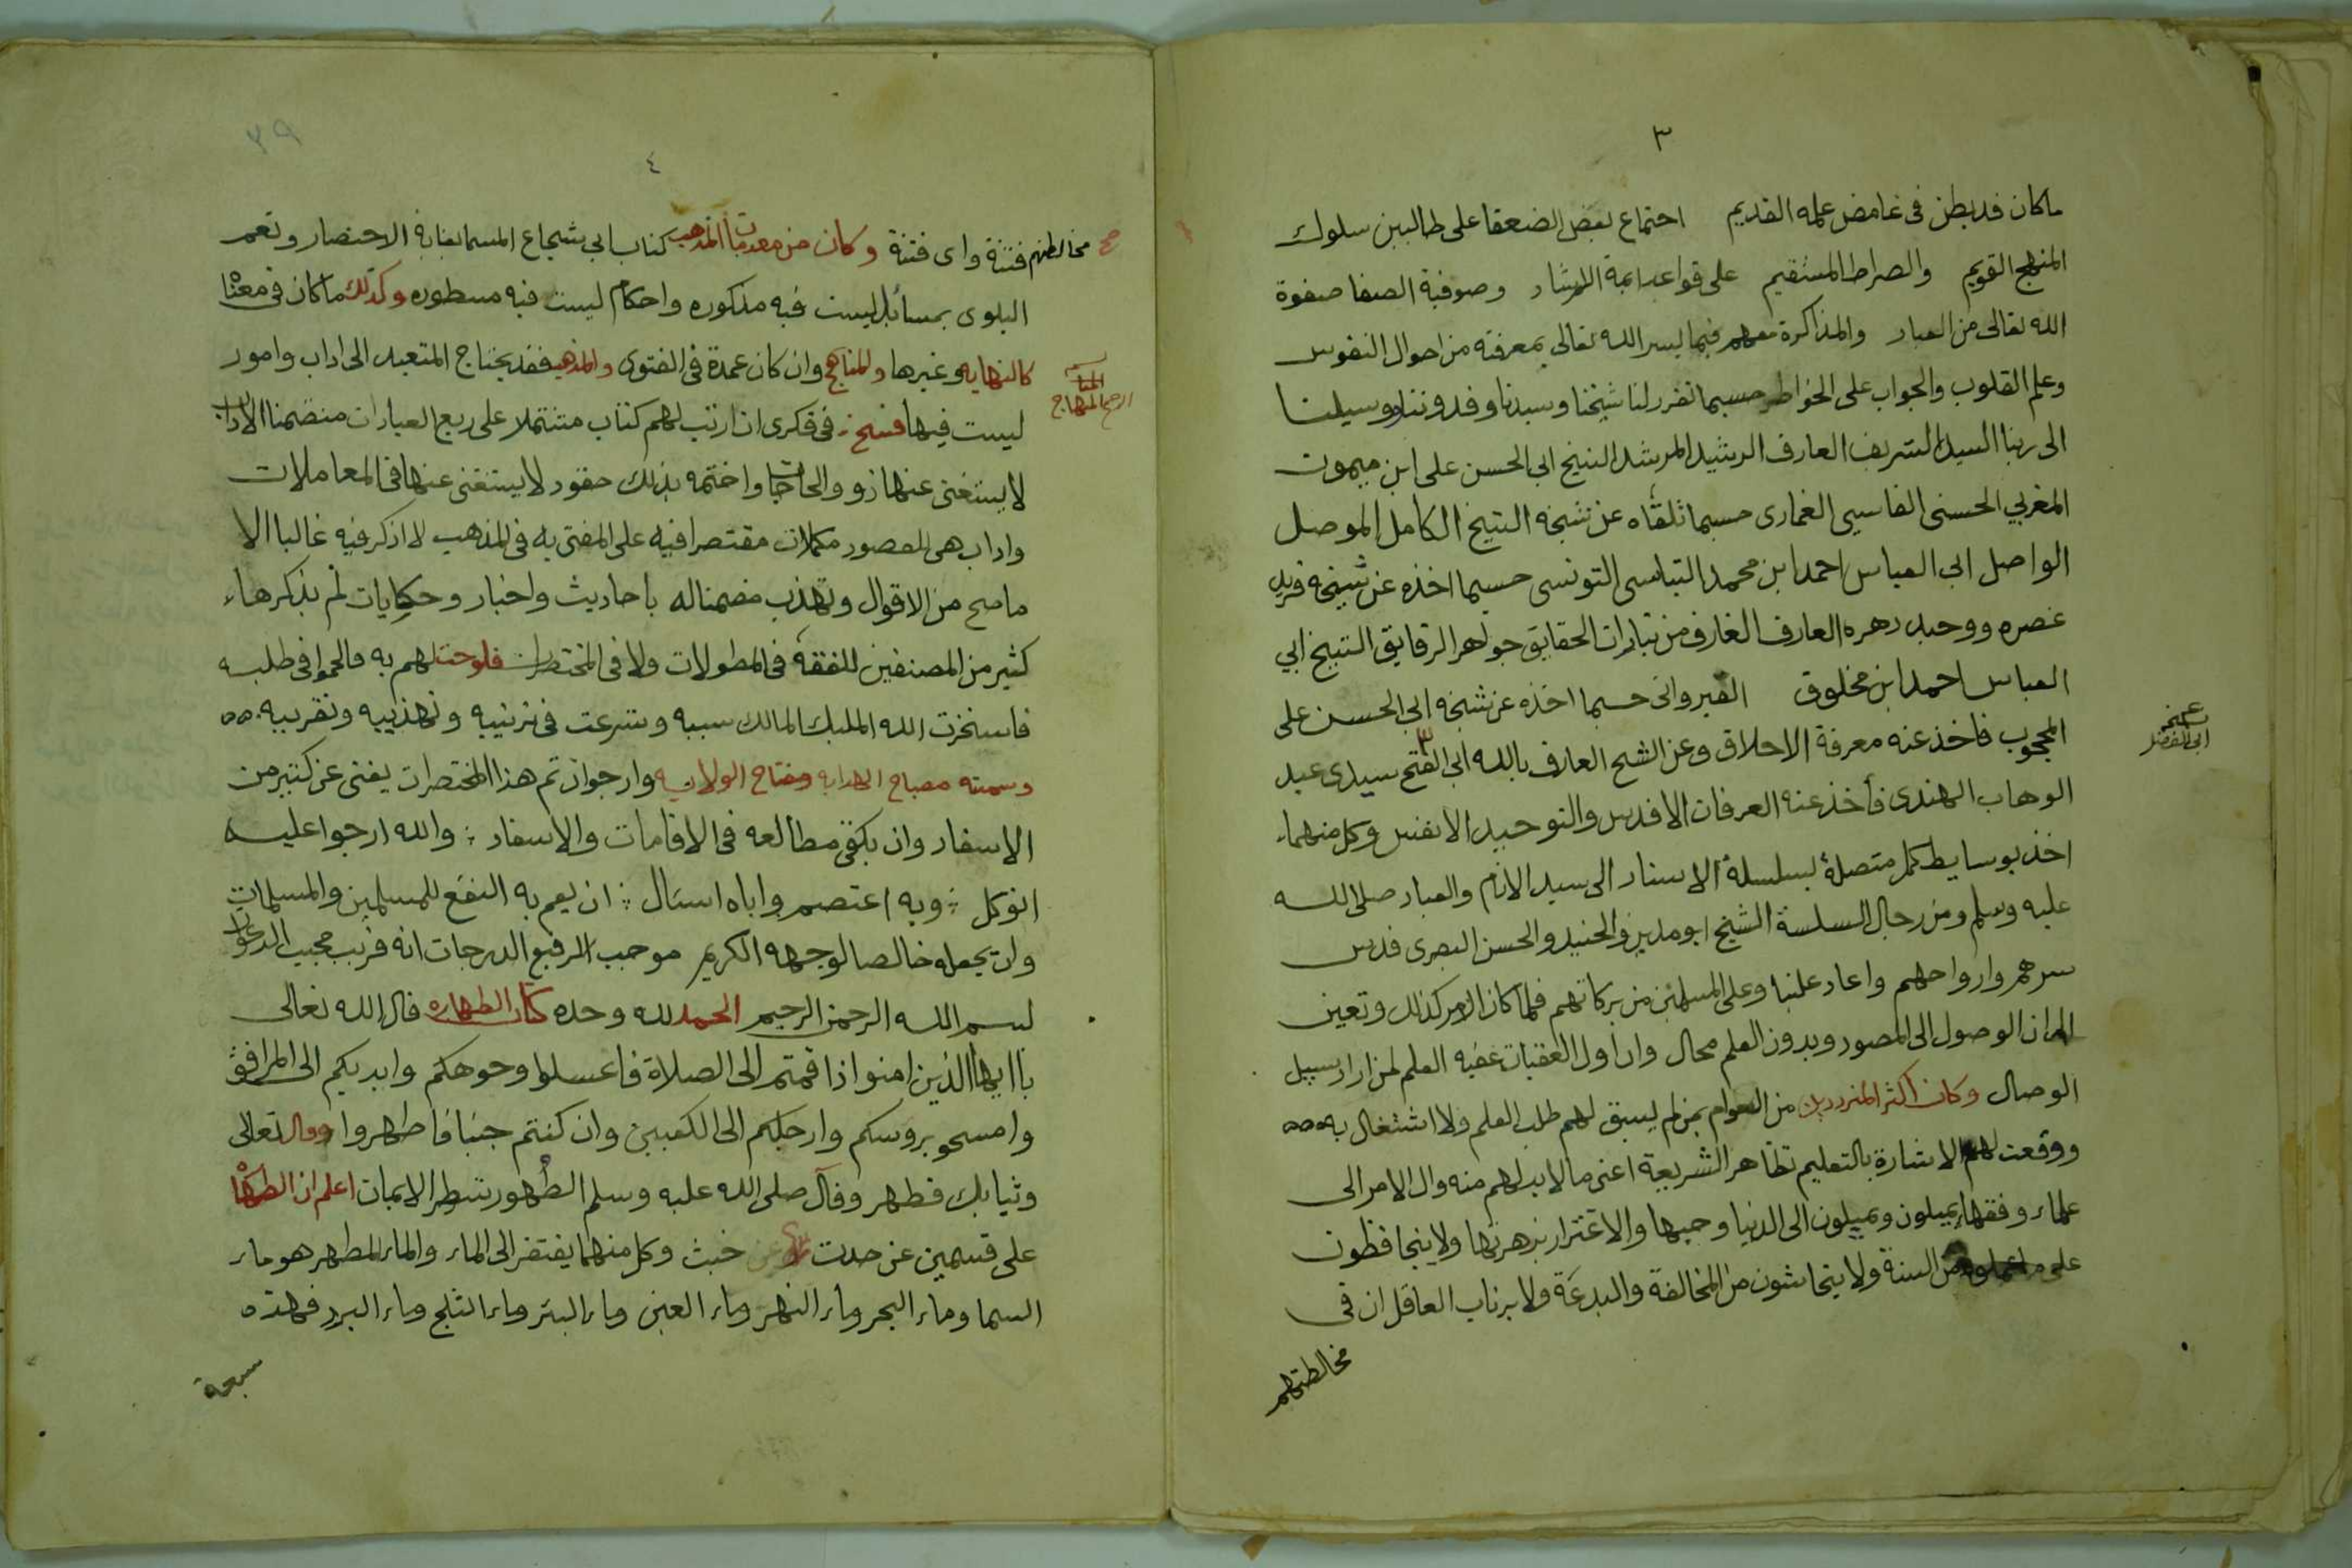 ٣
ماكان قد بطن فى غامض علمه القديم احتماع بعض الضعفا على طالبين سلوك
المنهج القويم والصراط المستقيم على قواعد ايمة الارشاد وصوفية الصفا صفوة
الله تعالى من العباد والمذاكرة معهم فيما يسر الله تعالى بمعرفته من احوال النفوس
وعلم القلوب والجواب على الخواطر حسبما تقرر لنا شيخنا وسيدنا وقدوتنا ووسيلتنا
الى ربنا السيد الشريف العارف الرشيد المرشد الشيخ ابى الحسن على ابن ميمون
المغربي الحسنى الفاسي الغمارى حسبما تلقاه عن شيخه الشيخ الكامل الموصل
الواصل ابى العباس احمد ابن محمد التباسى التونسى حسبما اخذه عن شيخه فريد
عصره ووحيد دهره العارف الغارف من تيارات الحقايق جواهر الرقايق الشيخ ابي
العباس احمد ابن مخلوق القيروانى حسبما اخذه عن شيخه ابى الحسن على
المحجوب فاخذ عنه معرفة الاخلاق وعن الشيخ العارف بالله ابى الفتح سيدى عبد
ابى الفضل
الوهاب الهندى فأخذ عنه العرفان الاقدس والتوحيد الانفس وكل منهما
اخذ بوسايط كمل متصلة بسلسلة الاسناد الى سيد الانام والعباد صلى الله
عليه وسلم ومن رجال السلسة الشيخ ابو مدين والجنيد والحسن البصرى قدس
سرهم وارواحهم واعاد علينا وعلى المسلمين من بركاتهم فلما كان الامر كذلك وتعين
ان الوصول الى المقصود وبدون العلم محال وان اول العقبات عقبة العلم لمن اراد سبيل
الوصال وكان اكثر المترددين من العوام بمن لم يسبق لهم طلب العلم ولا اشتغال به
ووقعت لهم الاشارة بالتعليم تظاهر الشريعة اعنى مالا بد لهم منه وال الامر الى
علماء وفقهاء يميلون ويميلون الى الدنيا وحبها والاغترار بزهرتها ولا يتحافظون
على ما علموه من السنة ولا يتحاشون من المخالفة والبدعة ولا يرتاب العاقل ان فى
مخالطتهم
٤
٣٩
مخالطتهم فتنة واى فتنة وكان من مقدمات المذهب كتاب ابي شجاع المسما بغاية الاختصار وتعم
البلوى بمسائل ليست فيه مذكوره واحكام ليست فيه مسطوره وكذلك ما كان فى معناه
كالنهايه وغيرها والمناهج وان كان عمدة فى الفتوى والمذهب فقد يحتاج المتعبد الى اداب وامور
المنهاج
ليست فيها فسنح فى فكرى ان ارتب لهم كتاب مشتملا على ربع العبادات متضمنا الاداب
لا يستغنى عنها ذوو الحاجات واختمه بذلك حقود لا يستغنى عنها فى المعاملات
واداب هى للمقصود مكملات مقتصرا فيه على المفتى به فى المذهب لا اذكر فيه غالبا الا
ماصح من الاقوال وتهذب مضمنا له باحاديث واخبار وحكايات لم يذكرها
كثير من المصنفين للفقه فى المطولات ولا فى المختصرات فلوحت لهم به فالحوا فى طلبه
فاستخرت الله المليك المالك سببه وشرعت فى ترتيبه وتهذيبه وتقريبه
وسميته مصباح الهدايه ومفتاح الولايه وارجوا ان تم هذا المختصرات يغنى عن كثير من
الاسفار وان يكفى مطالعه فى الاقامات والاسفار والله ارجوا عليه
اتوكل وبه اعتصم واياه اسئال ان يعم به النفع للمسلمين والمسلمات
وان يجعله خالصا لوجهه الكريم موجب الرفيع الدرجات انه قريب مجيب الدعوات
بسم الله الرحمن الرحيم الحمد لله وحده كتاب الطهاره قال الله تعالى
ياايها الذين امنوا اذا قمتم الى الصلاة فاغسلوا وجوهكم وايديكم الى المرافق
وامسحو بروسكم وارجلكم الى الكعبين وان كنتم جنبا فاطهروا وقال تعالى
وثيابك فطهر وقال صلى الله عليه وسلم الطهور شطر الايمان اعلم ان الطهاره
على قسمين عن حدث وعن خبث وكل منهما يفتقر الى الماء والماء المطهر هو ماء
السما وماء البحر وماء النهر وماء العين وماء البئر وماء الثلج وماء البرد فهذه
سبعة